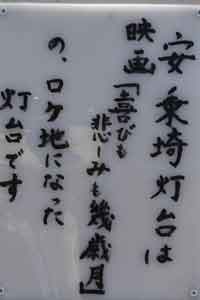 安乗埼灯台は
映画「喜びも
悲しみも幾歳月」
の、ロケ地になった
灯台です